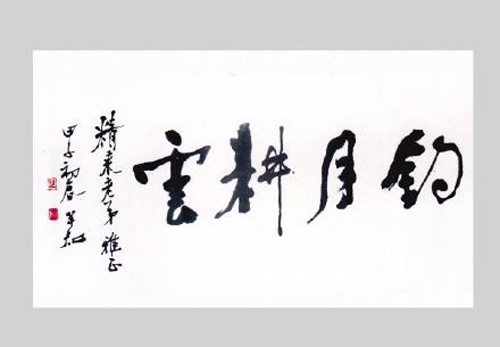 釣月耕雲
精来老弟 雅正
甲子初